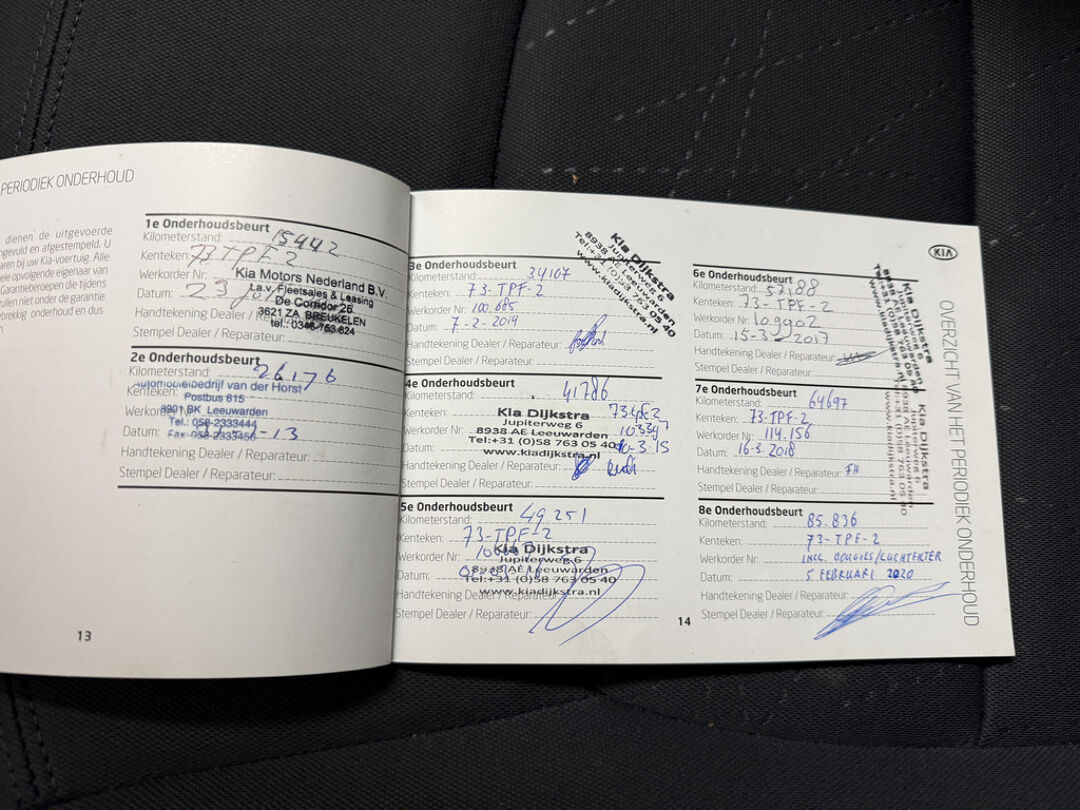 PERIODIEK ONDERHOUD
dienen de uitgevoerde
ngevuld en afgestempeld. U
aren bij uw Kia-voertuig. Alle
ele opvolgende eigenaar van
Garantieberoepen die tijdens
ullen niet onder de garantie
brekkig onderhoud en dus
1e Onderhoudsbeurt
Kilometerstand: 15442
Kenteken: 73 TPF 2
Werkorder Nr:
Datum: 23
Kia Motors Nederland B.V.
t.a.v. Fleetsales & Leasing
De Corridor 26
3621 ZA BREUKELEN
tel.:
Handtekening Dealer / Reparateur:
Stempel Dealer / Reparateur:
2e Onderhoudsbeurt
Kilometerstand: 26176
Kenteken:
Werkorder Nr:
Datum: -13
Automobielbedrijf van der Horst
Postbus 615
8901 BK Leeuwarden
Tel.: 058-2333444
Fax 058-2333456
Handtekening Dealer / Reparateur:
Stempel Dealer / Reparateur:
13
3e Onderhoudsbeurt
Kilometerstand: 34107
Kenteken: 73-TPF-2
Werkorder Nr: 100.685
Datum: 7-2-2014
Handtekening Dealer / Reparateur:
Stempel Dealer / Reparateur:
Kia Dijkstra
Jupiterweg 6
8938 AE Leeuwarden
Tel:+31 (0)58 763 05 40
www.kiadijkstra.nl
4e Onderhoudsbeurt
Kilometerstand: 41786
Kenteken: 73tpf2
Werkorder Nr: 103397
Datum: 10-3-15
Kia Dijkstra
Jupiterweg 6
8938 AE Leeuwarden
Tel:+31 (0)58 763 05 40
www.kiadijkstra.nl
Handtekening Dealer / Reparateur:
Stempel Dealer / Reparateur:
5e Onderhoudsbeurt
Kilometerstand: 49251
Kenteken: 73-TPF-2
Werkorder Nr:
Datum:
Kia Dijkstra
Jupiterweg 6
8938 AE Leeuwarden
Tel:+31 (0)58 763 05 40
www.kiadijkstra.nl
Handtekening Dealer / Reparateur:
Stempel Dealer / Reparateur:
14
KIA
6e Onderhoudsbeurt
Kilometerstand: 57188
Kenteken: 73-TPF-2
Werkorder Nr: 109902
Datum: 15-3-2017
Handtekening Dealer / Reparateur:
Stempel Dealer / Reparateur:
Kia Dijkstra
Jupiterweg 6
8938 AE Leeuwarden
Tel:+31 (0)58 763 05 40
7e Onderhoudsbeurt
Kilometerstand: 64697
Kenteken: 73-TPF-2
Werkorder Nr: 114.156
Datum: 16-3-2018
Handtekening Dealer / Reparateur: FH
Stempel Dealer / Reparateur:
Kia Dijkstra
Jupiterweg 6
8938 AE Leeuwarden
Tel:+31 (0)58 763 05 40
www.kiadijkstra.nl
8e Onderhoudsbeurt
Kilometerstand: 85.836
Kenteken: 73-TPF-2
Werkorder Nr: INCL BOUGIES/LUCHTFILTER
Datum: 5 FEBRUARI 2020
Handtekening Dealer / Reparateur:
Stempel Dealer / Reparateur:
OVERZICHT VAN HET PERIODIEK ONDERHOUD